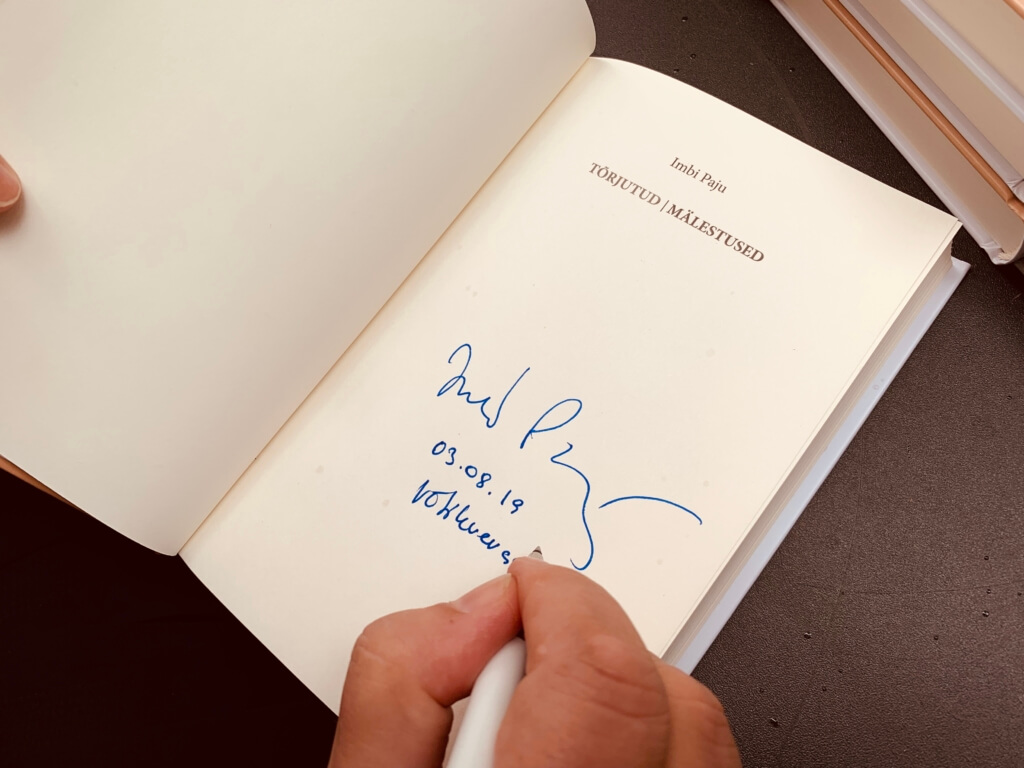 Imbi Paju
TÕRJUTUD | MÄLESTUSED
Imbi Paju
03.08.19